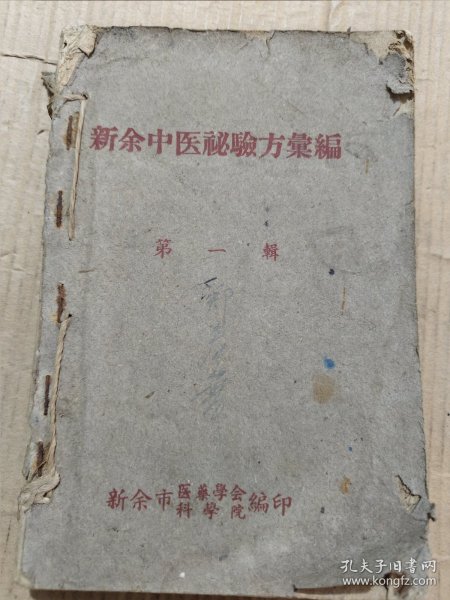 新余中医祕驗方彙編
第一輯
新余市医藥學会科學院編印
孔夫子旧书网
www.kongfz.com